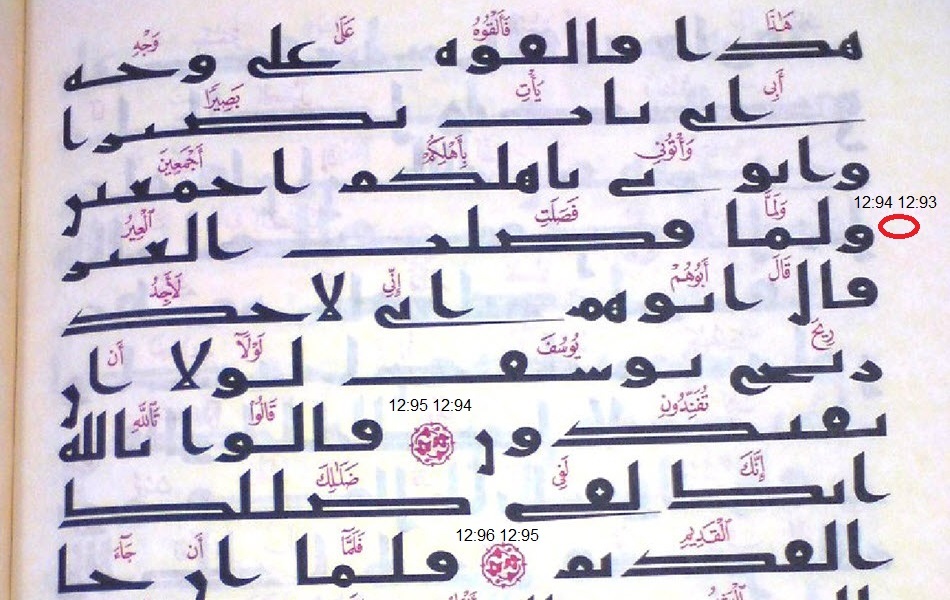 هَٰذَا فَأَلْقُوهُ عَلَىٰ وَجْهِ
هدا فالقوه على وجه
أَبِى يَأْتِ بَصِيرًا
ابى يات بصيرا
وَأْتُونِى بِأَهْلِكُمْ أَجْمَعِينَ
واتو نى باهلكم اجمعين
12:94 12:93
وَلَمَّا فَصَلَتِ ٱلْعِيرُ
ولما فصلت العير
قَالَ أَبُوهُمْ إِنِّى لَأَجِدُ
قال ابوهم انى لاجد
رِيحَ يُوسُفَ لَوْلَآ أَن
ريح يوسف لولا ان
تُفَنِّدُونِ 12:95 12:94 قَالُوا۟ تَٱللَّهِ
تفندون قالوا تالله
إِنَّكَ لَفِى ضَلَٰلِكَ
انك لفى ضللك
ٱلْقَدِيمِ 12:96 12:95 فَلَمَّآ أَن جَآءَ
القديم فلما ان جا